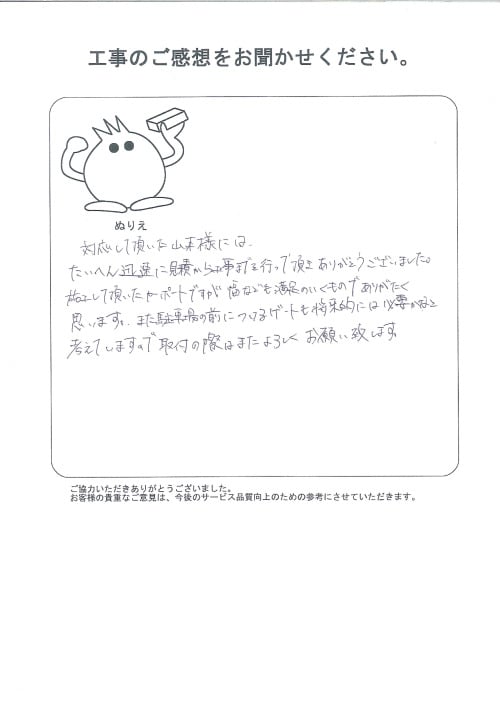 工事のご感想をお聞かせください。
ぬりえ
対応して頂いた山本様には、
たいへん迅速に見積から工事までを行って頂きありがとうございました。
して頂いたカーポートですが 高さなども満足のいくものでありがたく
思います。また駐車場の前につけるゲートも将来的には必要かなと
考えてしますので 取付の際はまたよろしくお願い致します
ご協力いただきありがとうございました。
お客様の貴重なご意見は、今後のサービス品質向上のための参考にさせていただきます。